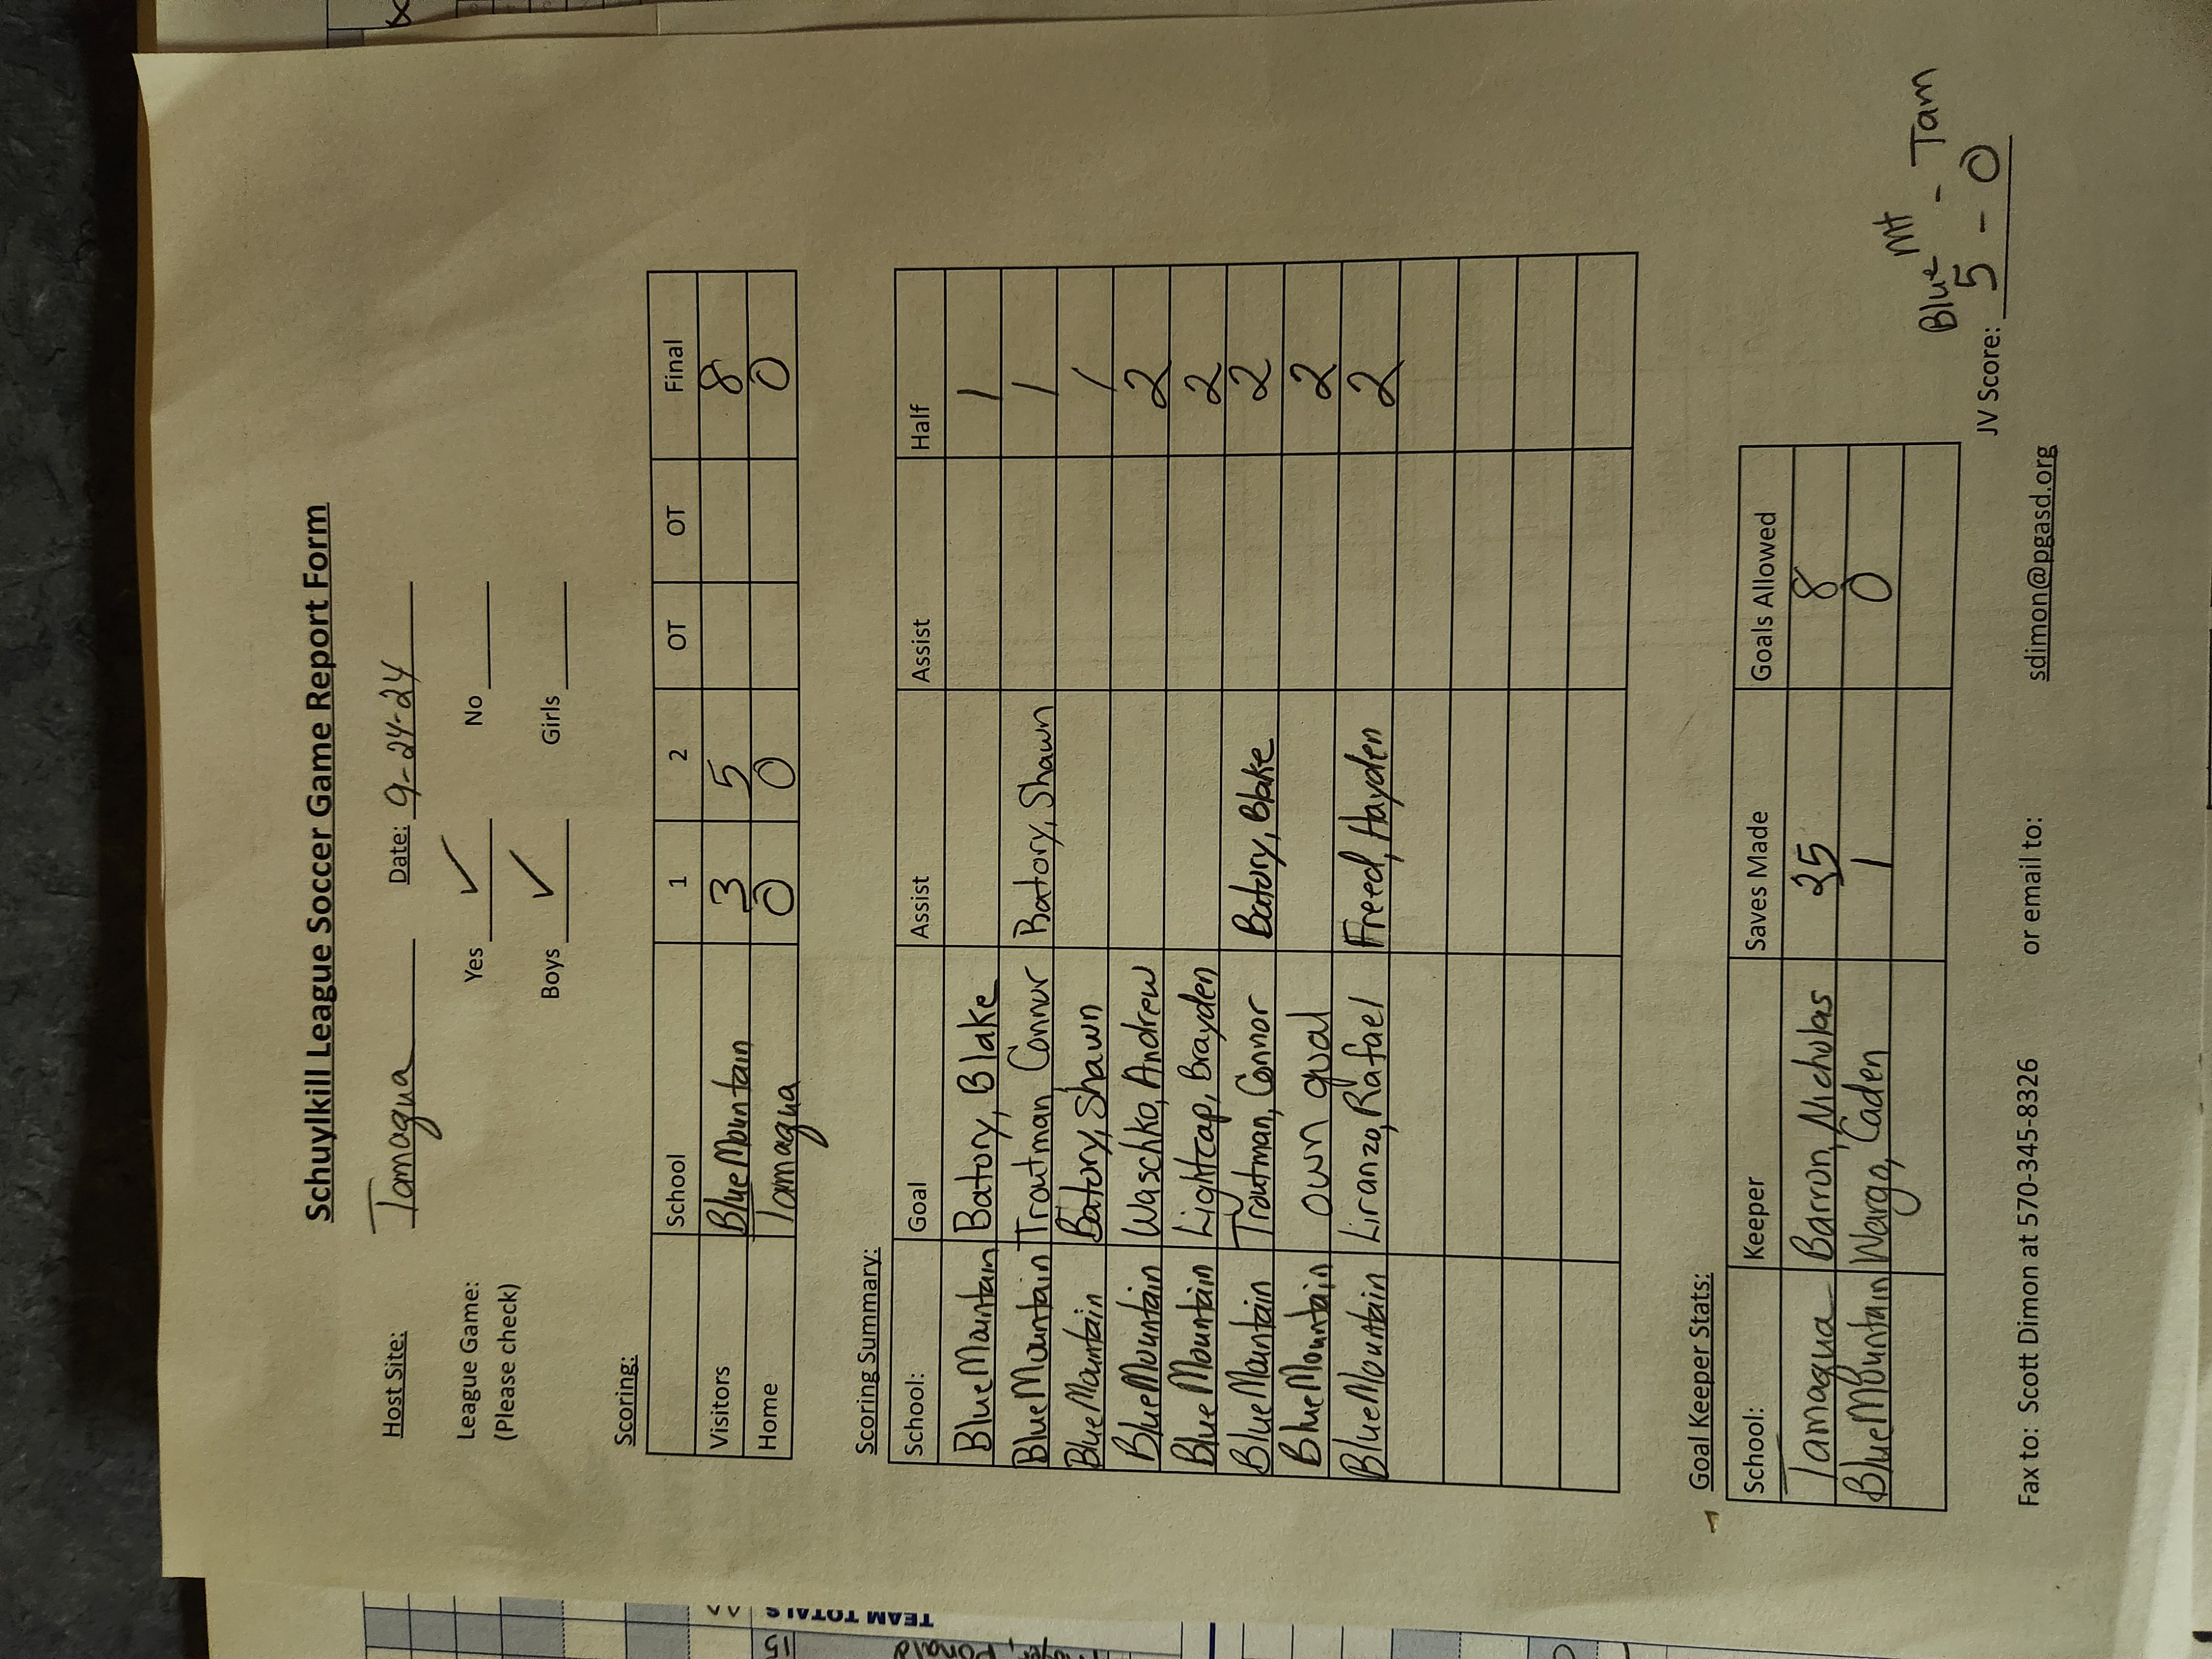 Schuylkill League Soccer Game Report Form
Host Site: Tamaqua Date: 9-24-24
League Game: Yes ✓ No
(Please check)
Boys ✓ Girls
Scoring:
School 1 2 OT OT Final
Visitors Blue Mountain 3 5 8
Home Tamaqua 0 0 0
Scoring Summary:
School: Goal Assist Assist Half
Blue Mountain Batory, Blake 1
Blue Mountain Troutman, Connor Batory, Shawn 1
Blue Mountain Batory, Shawn 1
Blue Mountain Waschko, Andrew 2
Blue Mountain Lightcap, Brayden 2
Blue Mountain Troutman, Connor Batory, Blake 2
Blue Mountain own goal 2
Blue Mountain Liranzo, Rafael Freed, Hayden 2
Goal Keeper Stats:
School: Keeper Saves Made Goals Allowed
Tamaqua Barron, Nicholas 25 8
Blue Mountain Wargo, Caden 1 0
Blue Mt - Tam
JV Score: 5 - 0
Fax to: Scott Dimon at 570-345-8326 or email to: sdimon@pgasd.org
TEAM TOTALS
15